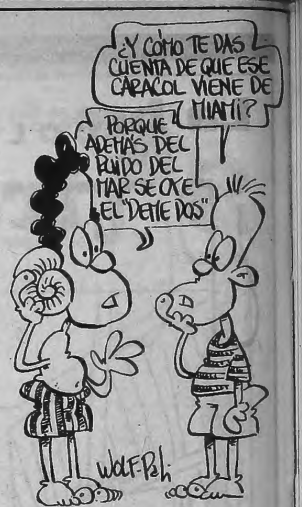 ¿Y CÓMO TE DAS
CUENTA DE QUE ESE
CARACOL VIENE DE
MIAMI?
PORQUE
ADEMÁS DEL
RUIDO DEL
MAR SE OYE
EL "DEME DOS"
WOLF-Pali